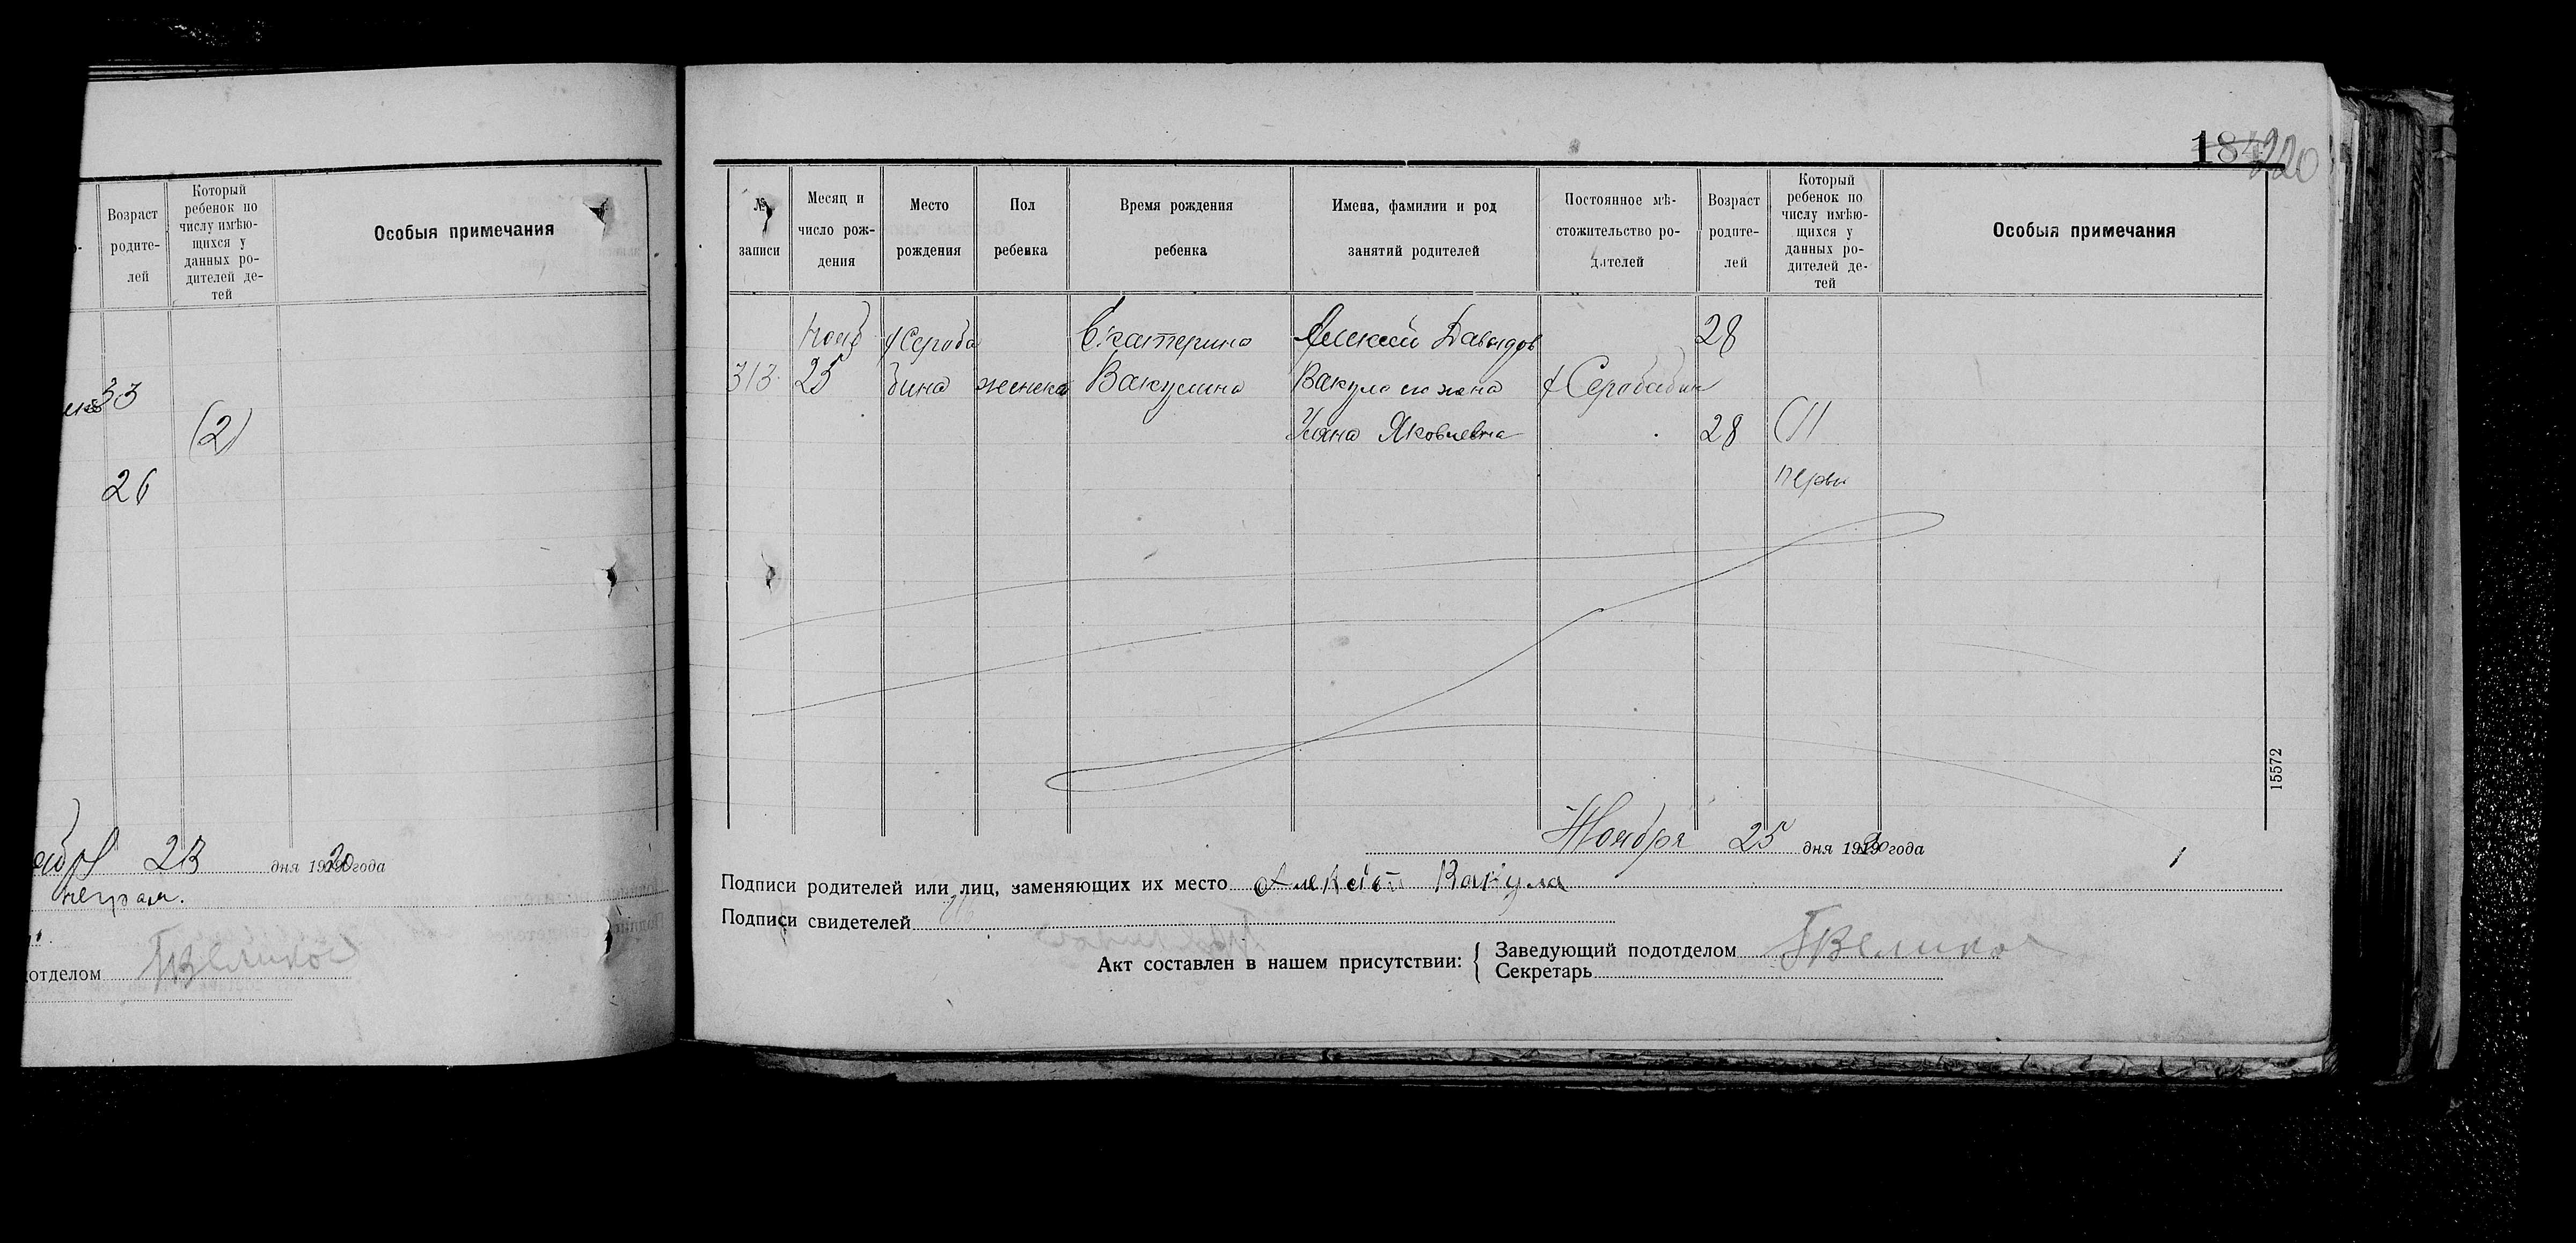 Возраст
родите-
лей
Который
ребенок по
числу имѣю-
щихся у
данных ро-
дителей де-
тей
Особыя примечания
33
(2)
26
23 дня 1920 года
неграм.
отделом ГВеликос
220
№
записи
Месяц и
число рож-
дения
Место
рождения
Пол
ребенка
Время рождения
ребенка
Имена, фамилии и род
занятий родителей
Постоянное мѣ-
стожительство ро-
дителей
Возраст
родите-
лей
Который
ребенок по
числу имѣю-
щихся у
данных ро-
дителей де-
тей
Особыя примечания
Нояб Сераба Екатерина Алексей Давыдов 28
313 25 бина женска Вакулина Вакула и жена Серабабин
Яковлевна 28 (1)
первы
15572
Ноября 25 дня 1920 года
Подписи родителей или лиц, заменяющих их место Алексей Вакула
Подписи свидетелей
Акт составлен в нашем присутствии: { Заведующий подотделом ГВеликос
Секретарь